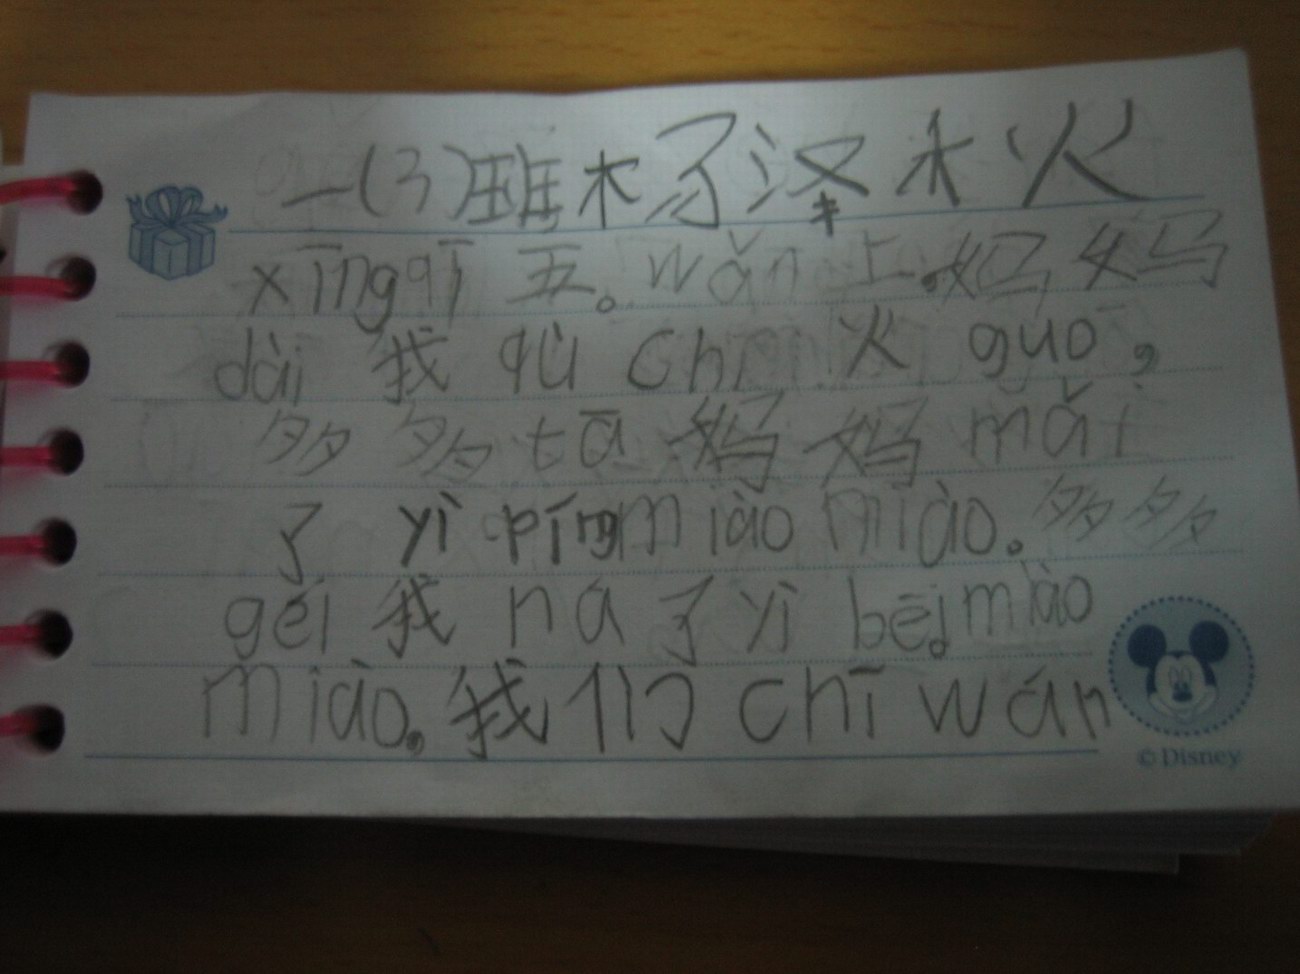 一(3)班杨泽木火
xīngqī 五。wǎn 上,妈妈
dài 我 qù chī 火 guō，
多多 tā 妈妈 mǎi
了 yì píng miào miào。多多
gěi 我 ná 了 yì bēi miào
miào。我们 chī wán
© Disney